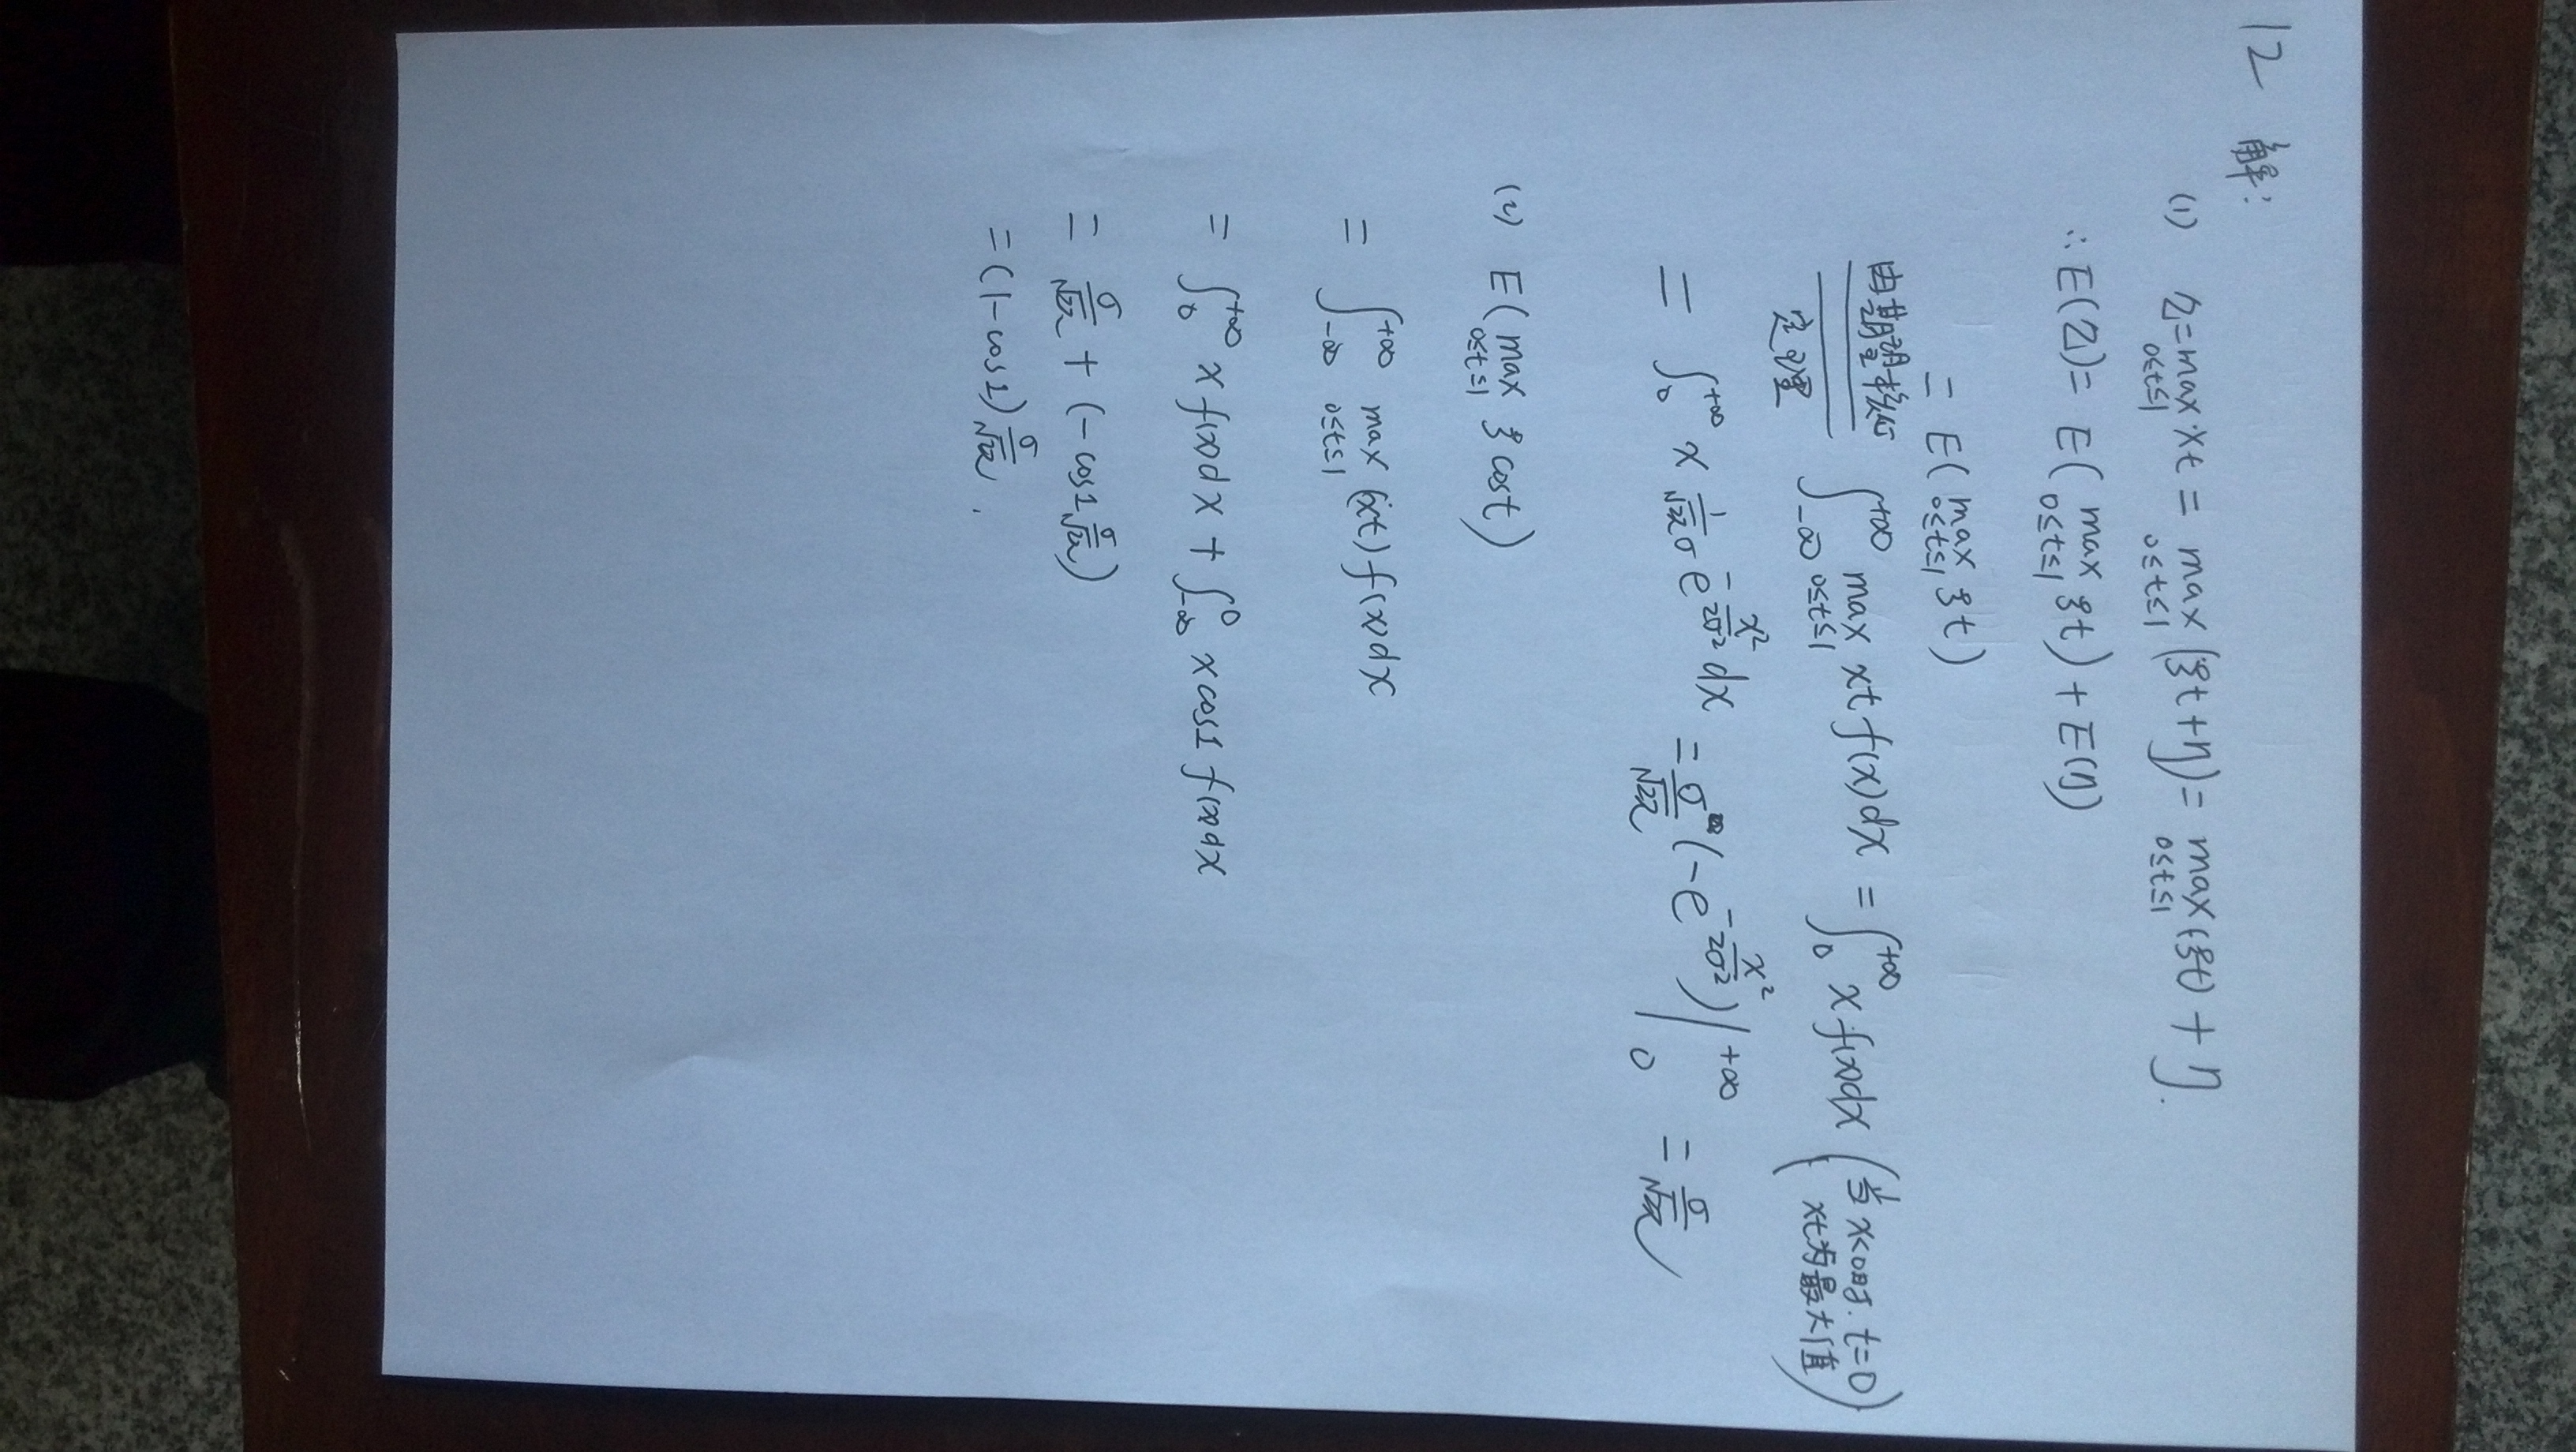 12 解:
(1) Z=max_{0≤t≤1} Xt = max_{0≤t≤1} (ξt+η) = max_{0≤t≤1} (ξt) + η.
∴ E(Z) = E( max_{0≤t≤1} ξt ) + E(η)
= E( max_{0≤t≤1} ξt )
由期望核心定理 ∫_{-∞}^{+∞} max_{0≤t≤1} xt f(x)dx = ∫_0^{+∞} x f(x)dx (当x<0时. t=0 xt为最大值)
= ∫_0^{+∞} x \frac{1}{\sqrt{2π}σ} e^{-\frac{x^2}{2σ^2}} dx = \frac{σ}{\sqrt{2π}} (-e^{-\frac{x^2}{2σ^2}}) |_0^{+∞} = \frac{σ}{\sqrt{2π}}
(2) E( max_{0≤t≤1} ξ cost )
= ∫_{-∞}^{+∞} max_{0≤t≤1} (xt) f(x)dx
= ∫_0^{+∞} x f(x)dx + ∫_{-∞}^0 x cos1 f(x)dx
= \frac{σ}{\sqrt{2π}} + (-cos1 \frac{σ}{\sqrt{2π}})
= (1-cos1) \frac{σ}{\sqrt{2π}} .